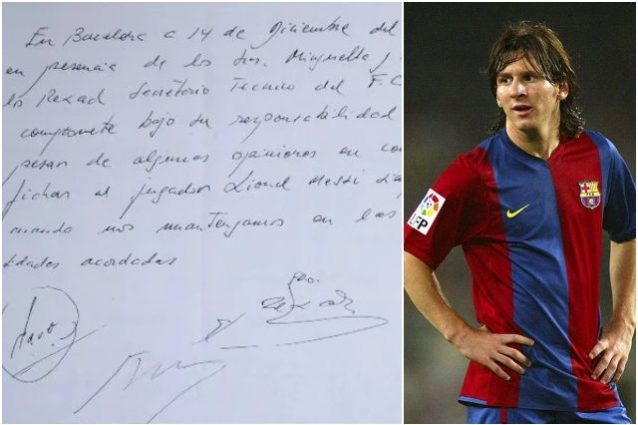 En Barcelona a 14 de Diciembre del
en presencia de los Srs. Minguella y
los Rexach Secretario Tecnico del F.C.
compromete bajo su responsabilidad
pesar de algunas opiniones en co
fichar al jugador Lionel Messi
cuando nos mantengamos en las
tidades acordadas
LFP